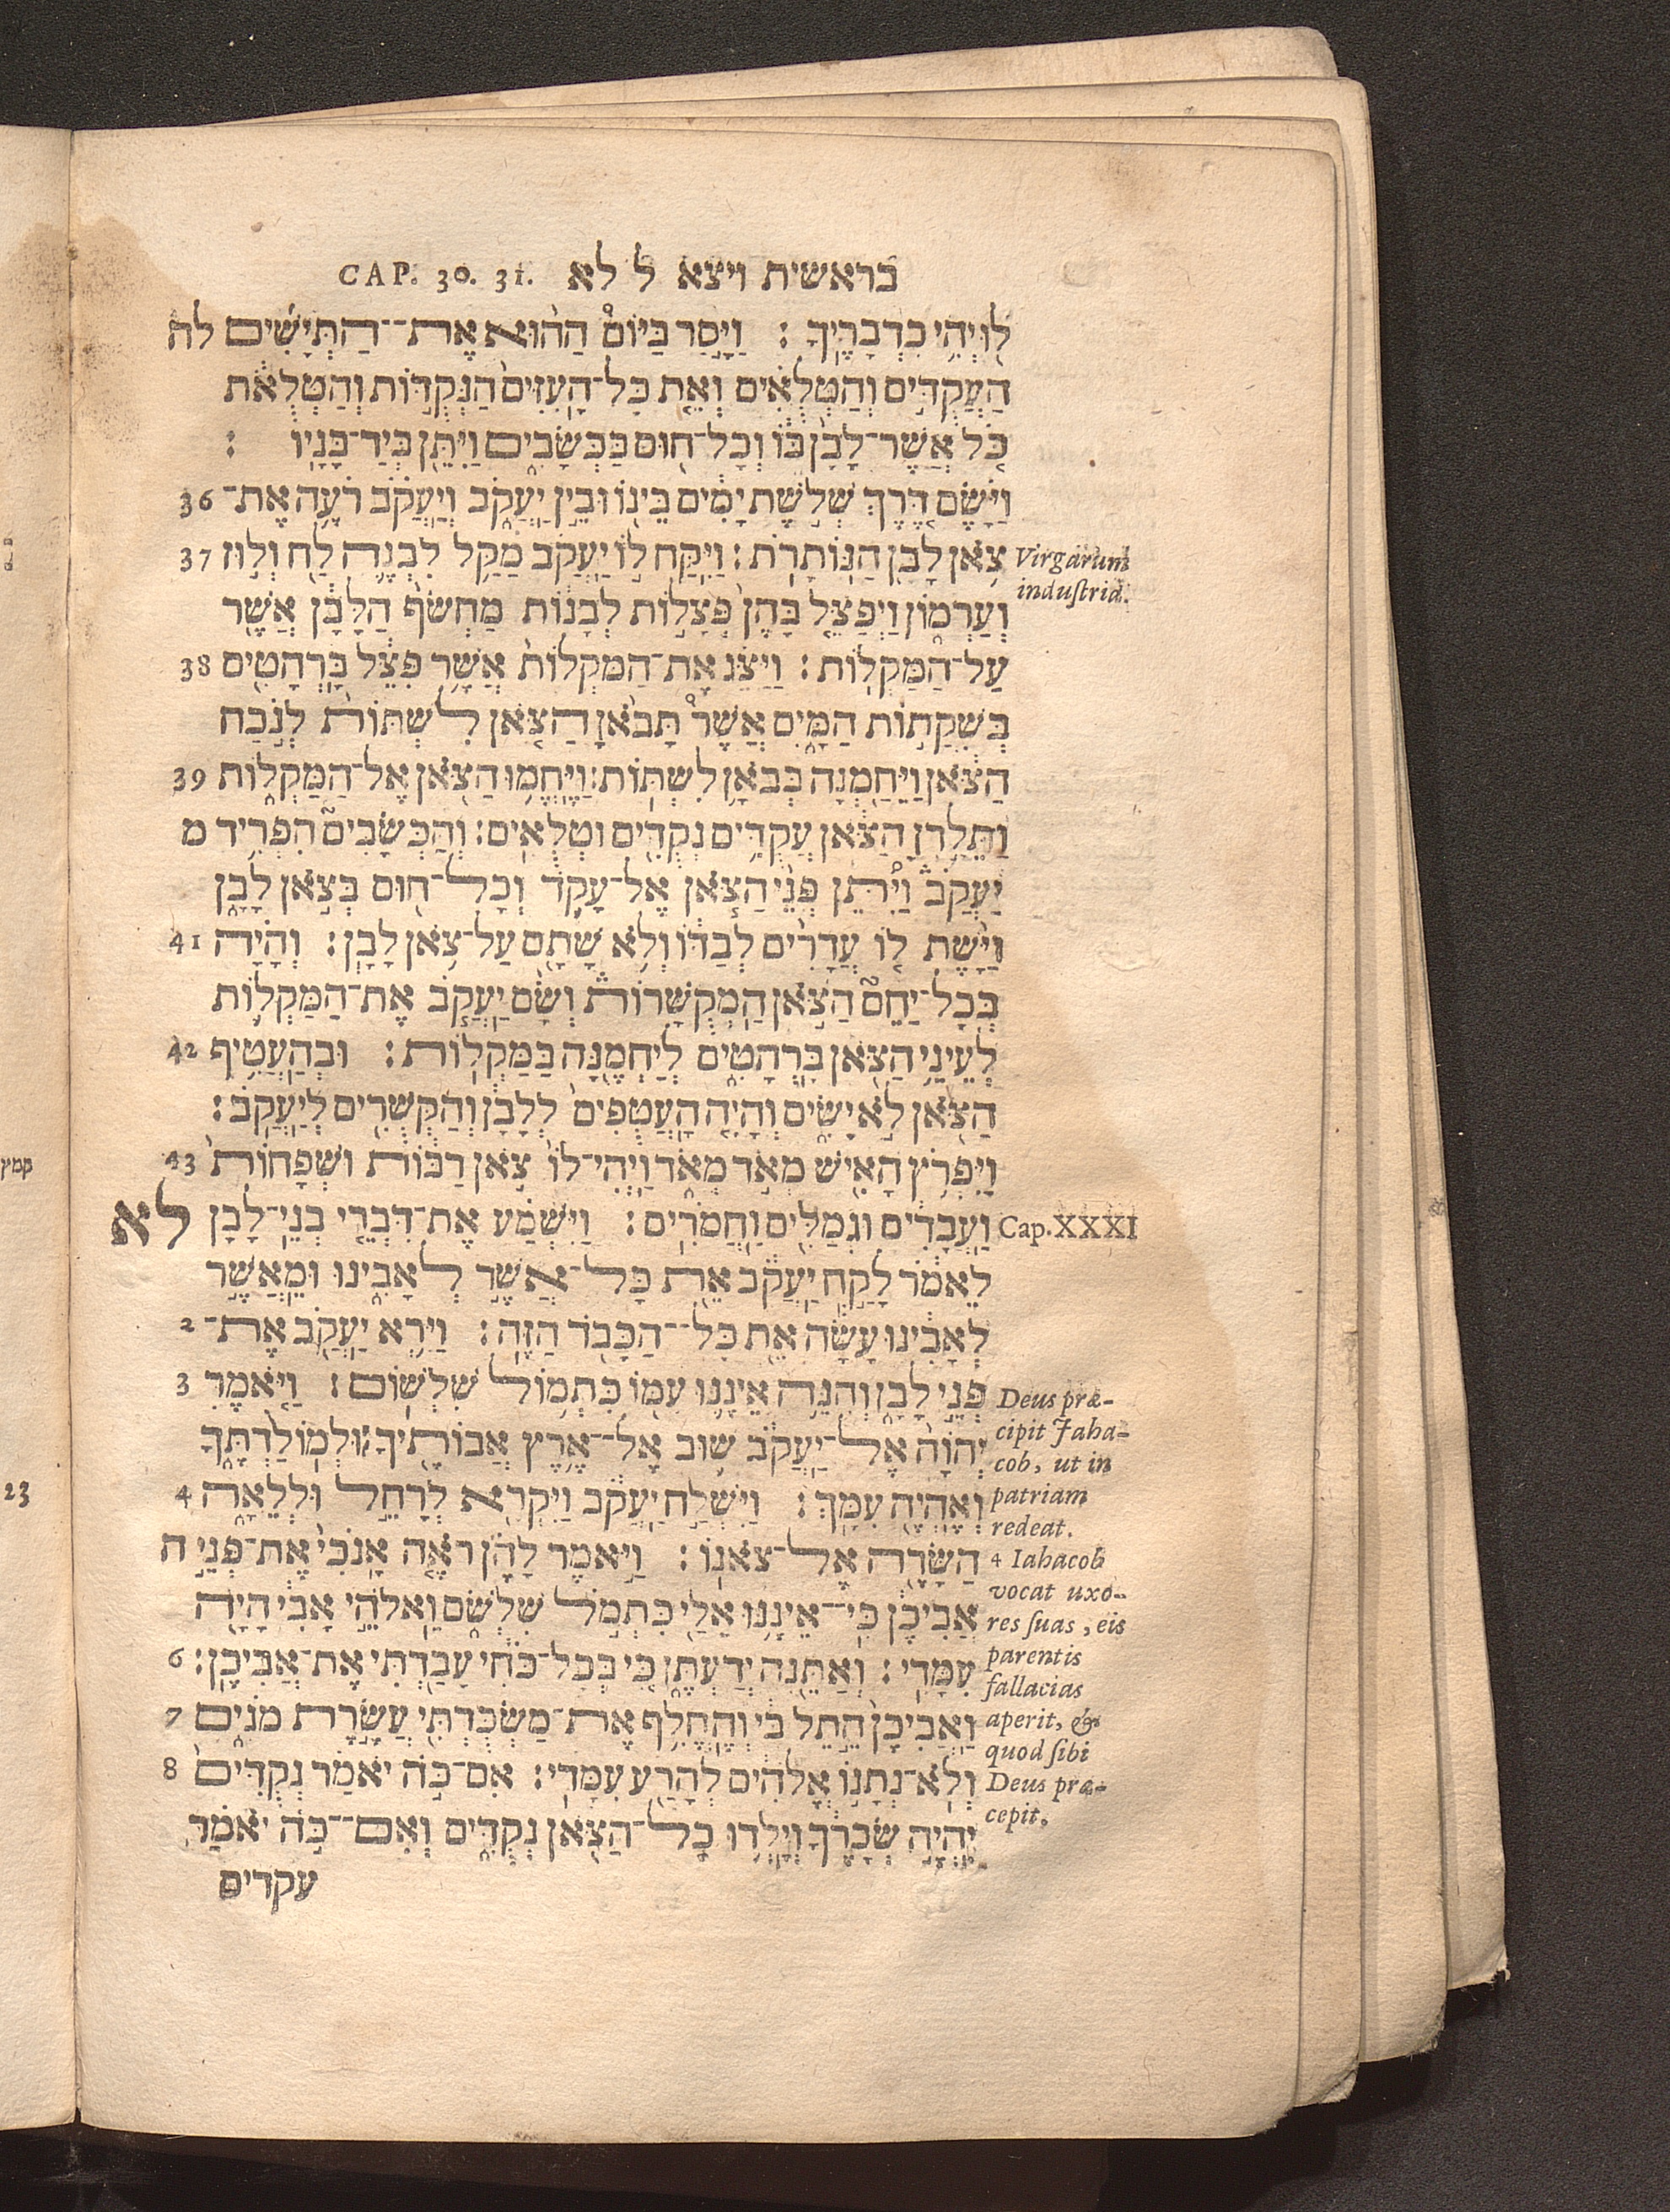 בראשית ויצא ל לא CAP. 30. 31.
ל֖וּ יְהִ֥י כִדְבָרֶֽךָ׃ וַיָּ֣סַר בַּיּוֹם֩ הַה֨וּא אֶת־הַתְּיָשִׁ֜ים לה
הָֽעֲקֻדִּ֣ים וְהַטְּלֻאִ֗ים וְאֵ֤ת כָּל־הָֽעִזִּים֙ הַנְּקֻדּ֣וֹת וְהַטְּלֻאֹ֔ת
כֹּ֤ל אֲשֶׁר־לָבָן֙ בּ֔וֹ וְכָל־ח֖וּם בַּכְּשָׂבִ֑ים וַיִּתֵּ֖ן בְּיַד־בָּנָֽיו׃
וַיָּ֗שֶׂם דֶּ֚רֶךְ שְׁלֹ֣שֶׁת יָמִ֔ים בֵּינ֖וֹ וּבֵ֣ין יַֽעֲקֹ֑ב וְיַֽעֲקֹ֗ב רֹעֶ֛ה אֶת־ 36
צֹ֥אן לָבָ֖ן הַנּֽוֹתָרֹֽת׃ וַיִּֽקַּֽח ל֣וֹ יַֽעֲקֹ֗ב מַקַּ֥ל לִבְנֶ֛ה לַ֖ח וְל֣וּז 37
Virgarum
industria.
וְעַרְמ֑וֹן וַיְפַצֵּ֤ל בָּהֵן֙ פְּצָל֣וֹת לְבָנ֔וֹת מַחְשֹׂף֙ הַלָּבָ֔ן אֲשֶׁ֖ר
עַל־הַמַּקְלֽוֹת׃ וַיַּצֵּ֗ג אֶת־הַמַּקְלוֹת֙ אֲשֶׁ֣ר פִּצֵּ֔ל בָּרְהָטִ֖ים 38
בְּשִֽׁקֲת֣וֹת הַמָּ֑יִם אֲשֶׁר֩ תָּבֹ֨אןָ הַצֹּ֤אן לִשְׁתּוֹת֙ לְנֹ֣כַח
הַצֹּ֔אן וַיֵּחַ֖מְנָה בְּבֹאָ֥ן לִשְׁתּֽוֹת׃ וַיֶּֽחֱמ֥וּ הַצֹּ֖אן אֶל־הַמַּקְל֑וֹת 39
וַתֵּלַ֣דְןָ הַצֹּ֔אן עֲקֻדִּ֥ים נְקֻדִּ֖ים וּטְלֻאִֽים׃ וְהַכְּשָׂבִים֮ הִפְרִ֣יד מ
יַֽעֲקֹב֒ וַ֠יִּתֵּן פְּנֵ֨י הַצֹּ֧אן אֶל־עָקֹ֛ד וְכָל־ח֖וּם בְּצֹ֣אן לָבָ֑ן
וַיָּ֨שֶׁת ל֤וֹ עֲדָרִים֙ לְבַדּ֔וֹ וְלֹ֥א שָׁתָ֖ם עַל־צֹ֥אן לָבָֽן׃ וְהָיָ֗ה 41
בְּכָל־יַחֵם֮ הַצֹּ֣אן הַמְקֻשָּׁרוֹת֒ וְשָׂ֨ם יַֽעֲקֹ֧ב אֶת־הַמַּקְל֛וֹת
לְעֵינֵ֥י הַצֹּ֖אן בָּֽרְהָטִ֑ים לְיַחְמֵ֖נָּה בַּמַּקְלֽוֹת׃ וּבְהַֽעֲטִ֥יף 42
הַצֹּ֖אן לֹ֣א יָשִׂ֑ים וְהָיָ֤ה הָֽעֲטֻפִים֙ לְלָבָ֔ן וְהַקְּשֻׁרִ֖ים לְיַֽעֲקֹֽב׃
וַיִּפְרֹ֥ץ הָאִ֖ישׁ מְאֹ֣ד מְאֹ֑ד וַֽיְהִי־לוֹ֙ צֹ֣אן רַבּ֔וֹת וּשְׁפָחוֹת֙ 43
וַֽעֲבָדִ֔ים וּגְמַלִּ֖ים וַֽחֲמֹרִֽים׃ וַיִּשְׁמַ֗ע אֶת־דִּבְרֵ֤י בְנֵֽי־לָבָן֙ לא
Cap. XXXI
לֵאמֹ֔ר לָקַ֣ח יַֽעֲקֹ֔ב אֵ֖ת כָּל־אֲשֶׁ֣ר לְאָבִ֑ינוּ וּמֵֽאֲשֶׁ֣ר
לְאָבִ֔ינוּ עָשָׂ֕ה אֵ֥ת כָּל־הַכָּבֹ֖ד הַזֶּֽה׃ וַיַּ֥רְא יַֽעֲקֹ֖ב אֶת־ 2
פְּנֵ֣י לָבָ֑ן וְהִנֵּ֥ה אֵינֶ֛נּוּ עִמּ֖וֹ כִּתְמ֥וֹל שִׁלְשֽׁוֹם׃ וַיֹּ֤אמֶר 3
יְהוָֹה֙ אֶֽל־יַֽעֲקֹ֔ב שׁ֛וּב אֶל־אֶ֥רֶץ אֲבוֹתֶ֖יךָ וּלְמֽוֹלַדְתֶּ֑ךָ
וְאֶֽהְיֶ֖ה עִמָּֽךְ׃ וַיִּשְׁלַ֣ח יַֽעֲקֹ֔ב וַיִּקְרָ֖א לְרָחֵ֣ל וּלְלֵאָ֑ה 4
הַשָּׂדֶ֖ה אֶל־צֹאנֽוֹ׃ וַיֹּ֣אמֶר לָהֶ֗ן רֹאֶ֤ה אָֽנֹכִי֙ אֶת־פְּנֵ֣י ה
אֲבִיכֶ֔ן כִּֽי־אֵינֶ֥נּוּ אֵלַ֖י כִּתְמֹ֣ל שִׁלְשֹׁ֑ם וֵֽאלֹהֵ֣י אָבִ֔י הָיָ֖ה
עִמָּדִֽי׃ וְאַתֵּ֖נָה יְדַעְתֶּ֑ן כִּ֚י בְּכָל־כֹּחִ֔י עָבַ֖דְתִּי אֶת־אֲבִיכֶֽן׃ 6
וַֽאֲבִיכֶן֙ הֵ֣תֶל בִּ֔י וְהֶֽחֱלִ֥ף אֶת־מַשְׂכֻּרְתִּ֖י עֲשֶׂ֣רֶת מֹנִ֑ים 7
וְלֹֽא־נְתָנ֣וֹ אֱלֹהִ֔ים לְהָרַ֖ע עִמָּדִֽי׃ אִם־כֹּ֣ה יֹאמַ֗ר נְקֻדִּים֙ 8
יִֽהְיֶ֣ה שְׂכָרֶ֔ךָ וְיָֽלְד֥וּ כָל־הַצֹּ֖אן נְקֻדִּ֑ים וְאִם־כֹּ֣ה יֹאמַ֗ר
עקדים
Deus præ-
cipit Jaha-
cob, ut in
patriam
redeat.
4 Iahacob
vocat uxo-
res suas, eis
parentis
fallacias
aperit, &
quod sibi
Deus præ-
cepit.
קמץ
23